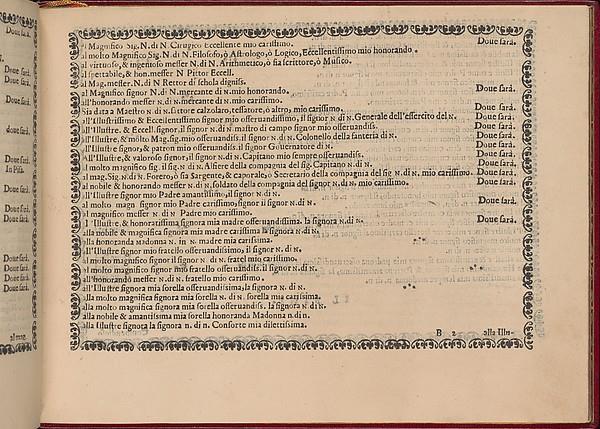 al Magnifico Sig. N. di N. Cirugico Eccellente mio carissimo. Doue sarà.
al molto Magnifico Sig. N. di N. Filosofo, ò Astrologo, ò Logico, Eccellentissimo mio honorando.
al virtuoso, & ingenioso messer N. di N. Arithmetico, ò sia scrittore, ò Musico.
al spettabile, & hon. messer N Pittor Eccell.
al Mag. messer. N. di N Rettor di schola digniss.
al Magnifico signor N. di N. mercante di N. mio honorando. Doue sarà.
all'honorando messer N. di N. mercante di N. mio carissimo. Doue sarà.
Sia data a Maestro N di N. sartore calzolaro, tessatore, ò altro, mio carissimo. Doue sarà.
all'Illustrissimo & Eccellentissimo signor mio osseruandissimo, il signor N. di N. Generale dell'essercito del N. Doue sarà.
all'Illustre. & Eccell. signor, il signor N. di N. mastro di campo signor mio osseruandiss. Doue sarà.
all'Illustre, & molto Mag. sig. mio osseruandiss. il signor N. di N. Colonello della fanteria di N. Doue sarà.
all'Illustre signor, & patron mio osseruandiss. il signor Gouernatore di N. Doue sarà.
All'Illustre, & valoroso signor, il signor N. di N. Capitano mio sempre osseruandiss. Doue sarà.
al molto magnifico sig. il sig. N di N. Alfiere della compagnia del sig. Capitano N. di N. Doue sarà.
al mag. Sig. N. di N. Forero, ò sia Sargente, & caporale, ò Secretario della compagnia del sig N. di N. mio carissimo. Doue sarà.
al nobile & honorando messer N. di N. soldato della compagnia del signor N. di N. mio carissimo. Doue sarà.
all'Illustre signor mio Padre amantissimo, il signor N. di N.
al molto magn signor mio Padre carissimo, signor il signor N. di N. Doue sarà.
al magnifico messer N. di N Padre mio carissimo.
all'Illustre, & honoratissima signora mia madre osseruandissima. la signora N. di N. Doue sarà.
alla nobile & magnifica signora mia madre carissima la signora N. di N.
alla honoranda Madonna N. di N. madre mia carissima.
all'Illustre signor mio fratello osseruandissimo, il signor N. di N.
al molto magnifico signor il signor N. di N. fratel mio carissimo.
al molto magnifico signor mio fratello osseruandiss. il signor N. di N.
all'honorando messer N. di N. fratello mio carissimo.
all'Illustre signora mia sorella osseruandissima, la signora N. di N.
alla molto magnifica signora mia sorella N. di N. sorella mia carissima.
alla molto magnifica signora mia sorella osseruandiss. la signora N. di N.
alla nobile & amantissima mia sorella honoranda Madonna n. di n.
alla Illustre signora la signora n. di n. Consorte mia dilettissima.
B 2 alla Illu-
Doue sarà.
Doue sarà.
Doue sarà.
Doue sarà.
doue sarà.
Doue sarà.
In Pisa.
Doue sarà.
Doue sarà.
Doue sarà.
Doue sarà.
Doue sarà.
Doue sarà.
Doue sarà.
al mag.